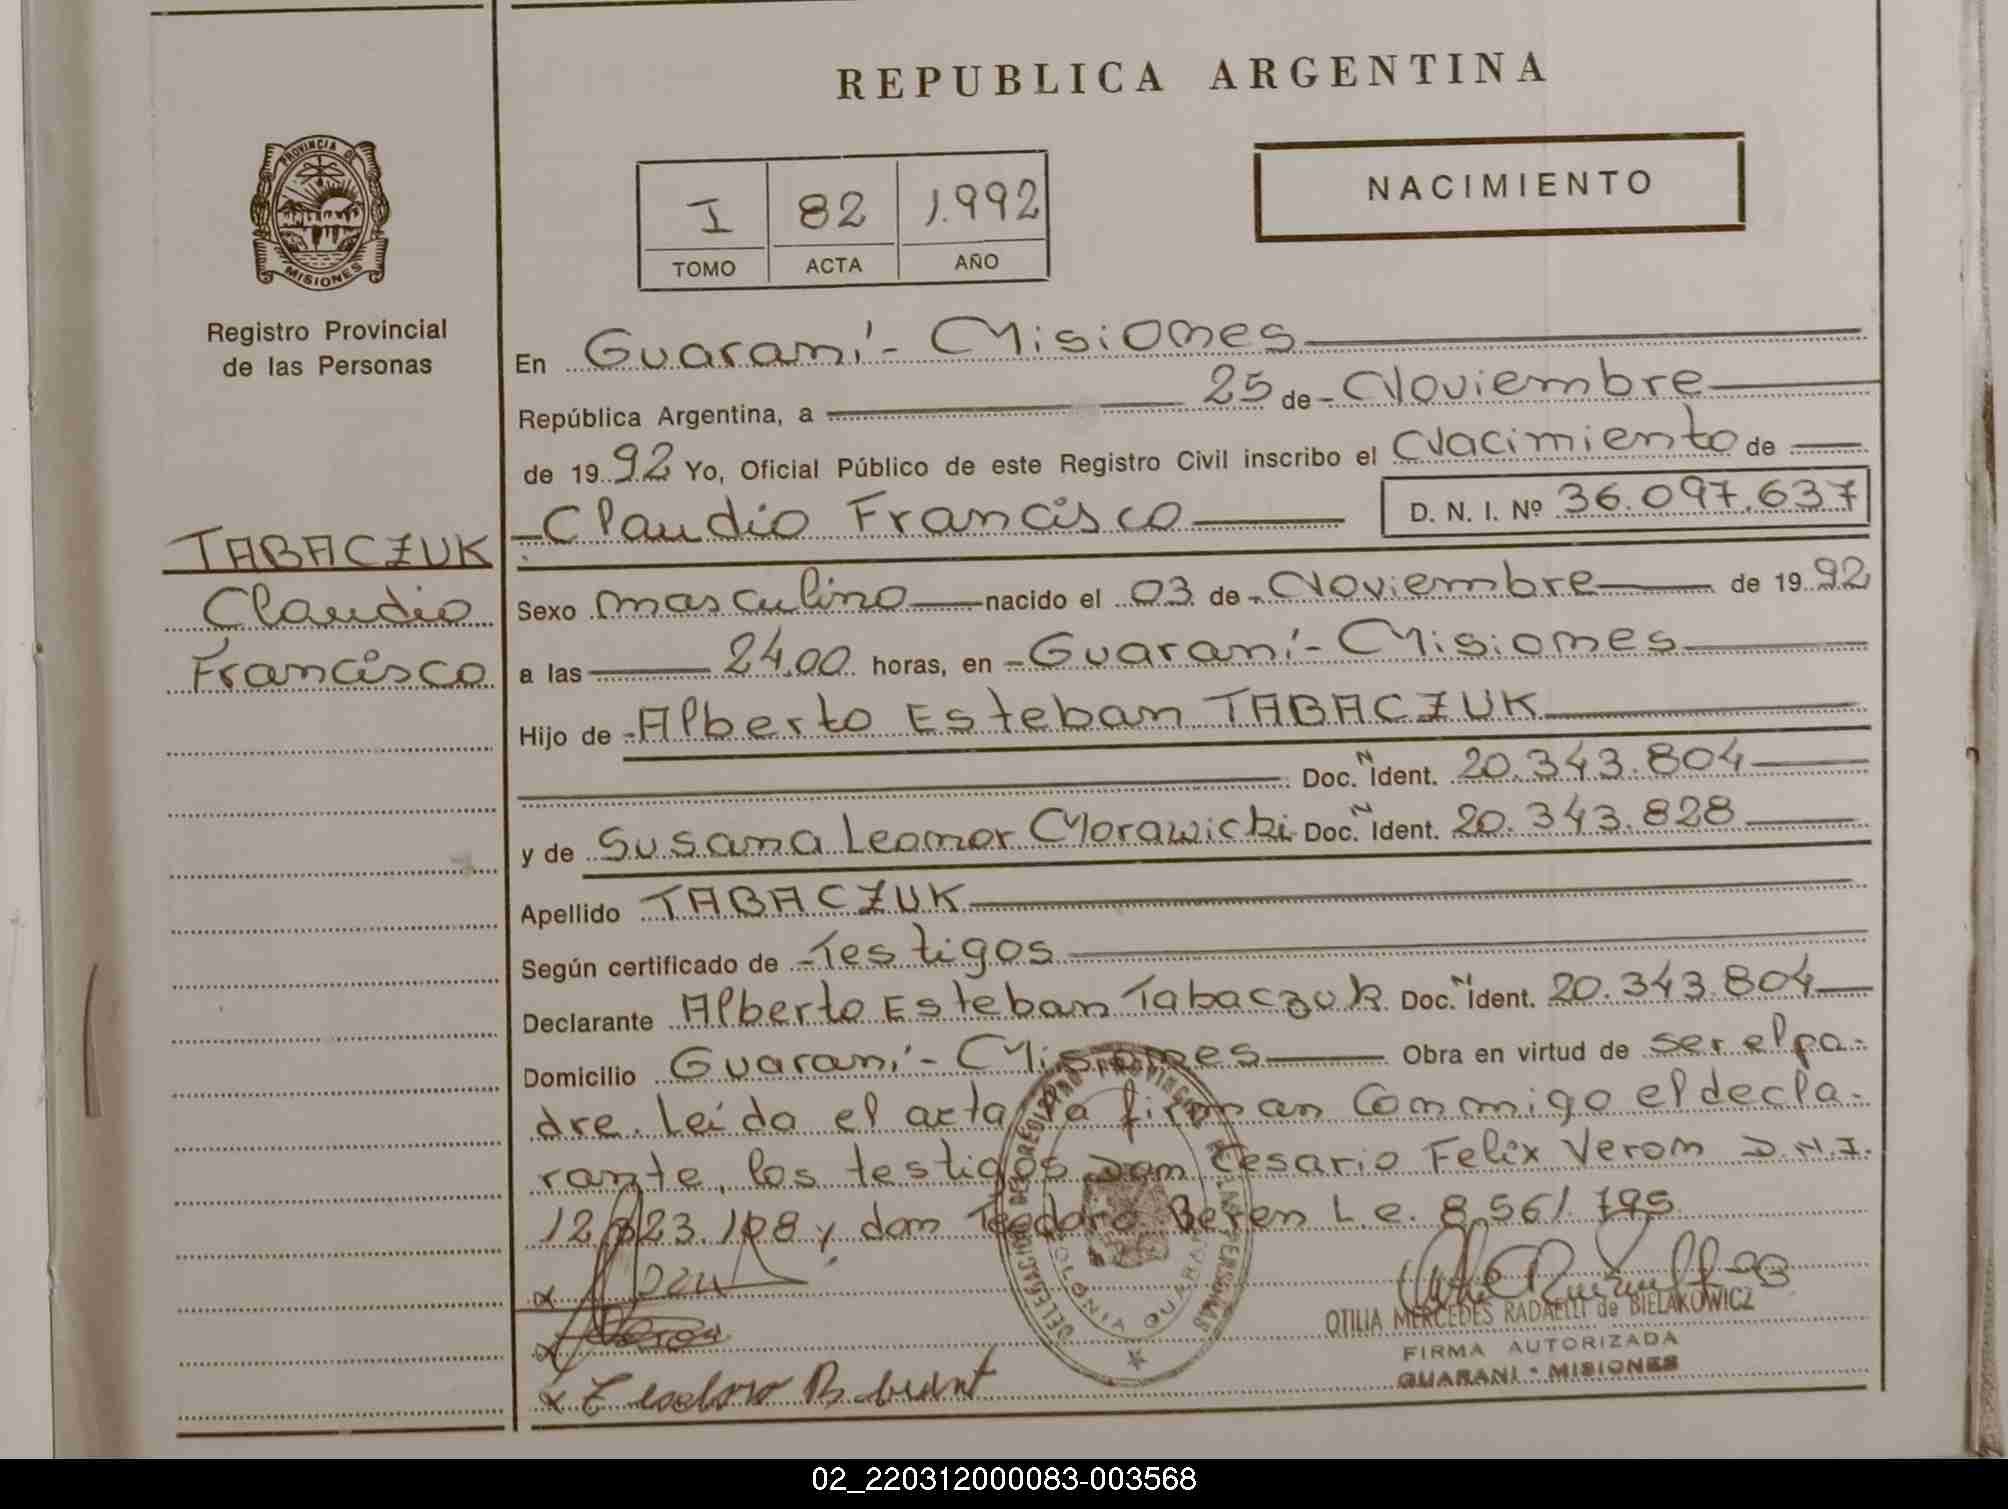 REPUBLICA ARGENTINA
PROVINCIA DE
MISIONES
I 82 1.992
TOMO ACTA AÑO
NACIMIENTO
Registro Provincial
de las Personas
TABACZUK
Claudio
Francisco
En Guaraní - Misiones
República Argentina, a 25 de - Noviembre
de 19 92 Yo, Oficial Público de este Registro Civil inscribo el Nacimiento de
- Claudio Francisco D. N. I. Nº 36.097.637
Sexo masculino nacido el 03 de - Noviembre de 19 92
a las 24,00 horas, en - Guaraní - Misiones
Hijo de - Alberto Esteban TABACZUK
Doc. N Ident. 20.343.804
y de Susana Leonor Morawicki Doc. N Ident. 20.343.828
Apellido TABACZUK
Según certificado de - Testigos
Declarante Alberto Esteban Tabaczuk Doc. N Ident. 20.343.804
Domicilio Guaraní - Misiones Obra en virtud de ser el pa-
dre. Leída el acta la firman conmigo el decla-
rante, los testigos Don Cesario Felix Veron D.N.I.
y don Teodoro Beren L.e. 8.561.795
DELEGACION DEL REGISTRO PROVINCIAL DE LAS PERSONAS
COLONIA GUARANI
OTILIA MERCEDES RADAELLI de BIELAKOWICZ
FIRMA AUTORIZADA
GUARANI - MISIONES
x Teodoro
02_220312000083-003568